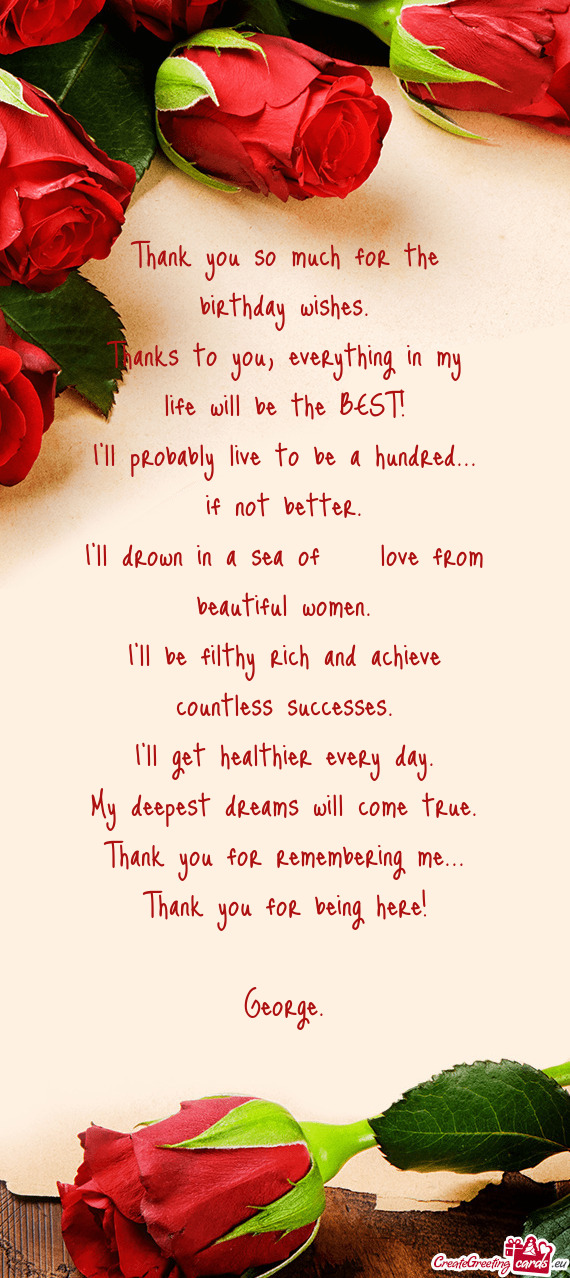 Thank you so much for the
birthday wishes.
Thanks to you, everything in my
life will be the BEST!
I'll probably live to be a hundred...
if not better.
I'll drown in a sea of love from
beautiful women.
I'll be filthy rich and achieve
countless successes.
I'll get healthier every day.
My deepest dreams will come true.
Thank you for remembering me...
Thank you for being here!
George.
CreateGreeting cards .eu